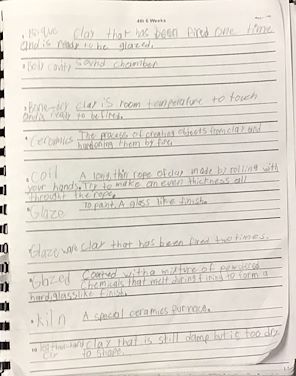 4th 6 Weeks
Bisque clay that has been fired one time
and is ready to be glazed.
Body cavity Sound chamber
Bone-dry clay is room temperature to touch
and is ready to be fired.
Ceramics The process of creating objects from clay and
hardening them by fire.
Coil A long thin rope of clay made by rolling with
your hands. Try to make an even thickness all
throught the rope.
Glaze To paint. A gloss like finish.
Glaze ware clay that has been fired two times.
Glazed Coated with a mixture of powdered
Chemicals that melt during firing to form a
hard, glass like finish.
Kiln A special ceramics furnace.
leather-hard clay that is still damp but is too dry
to shape.